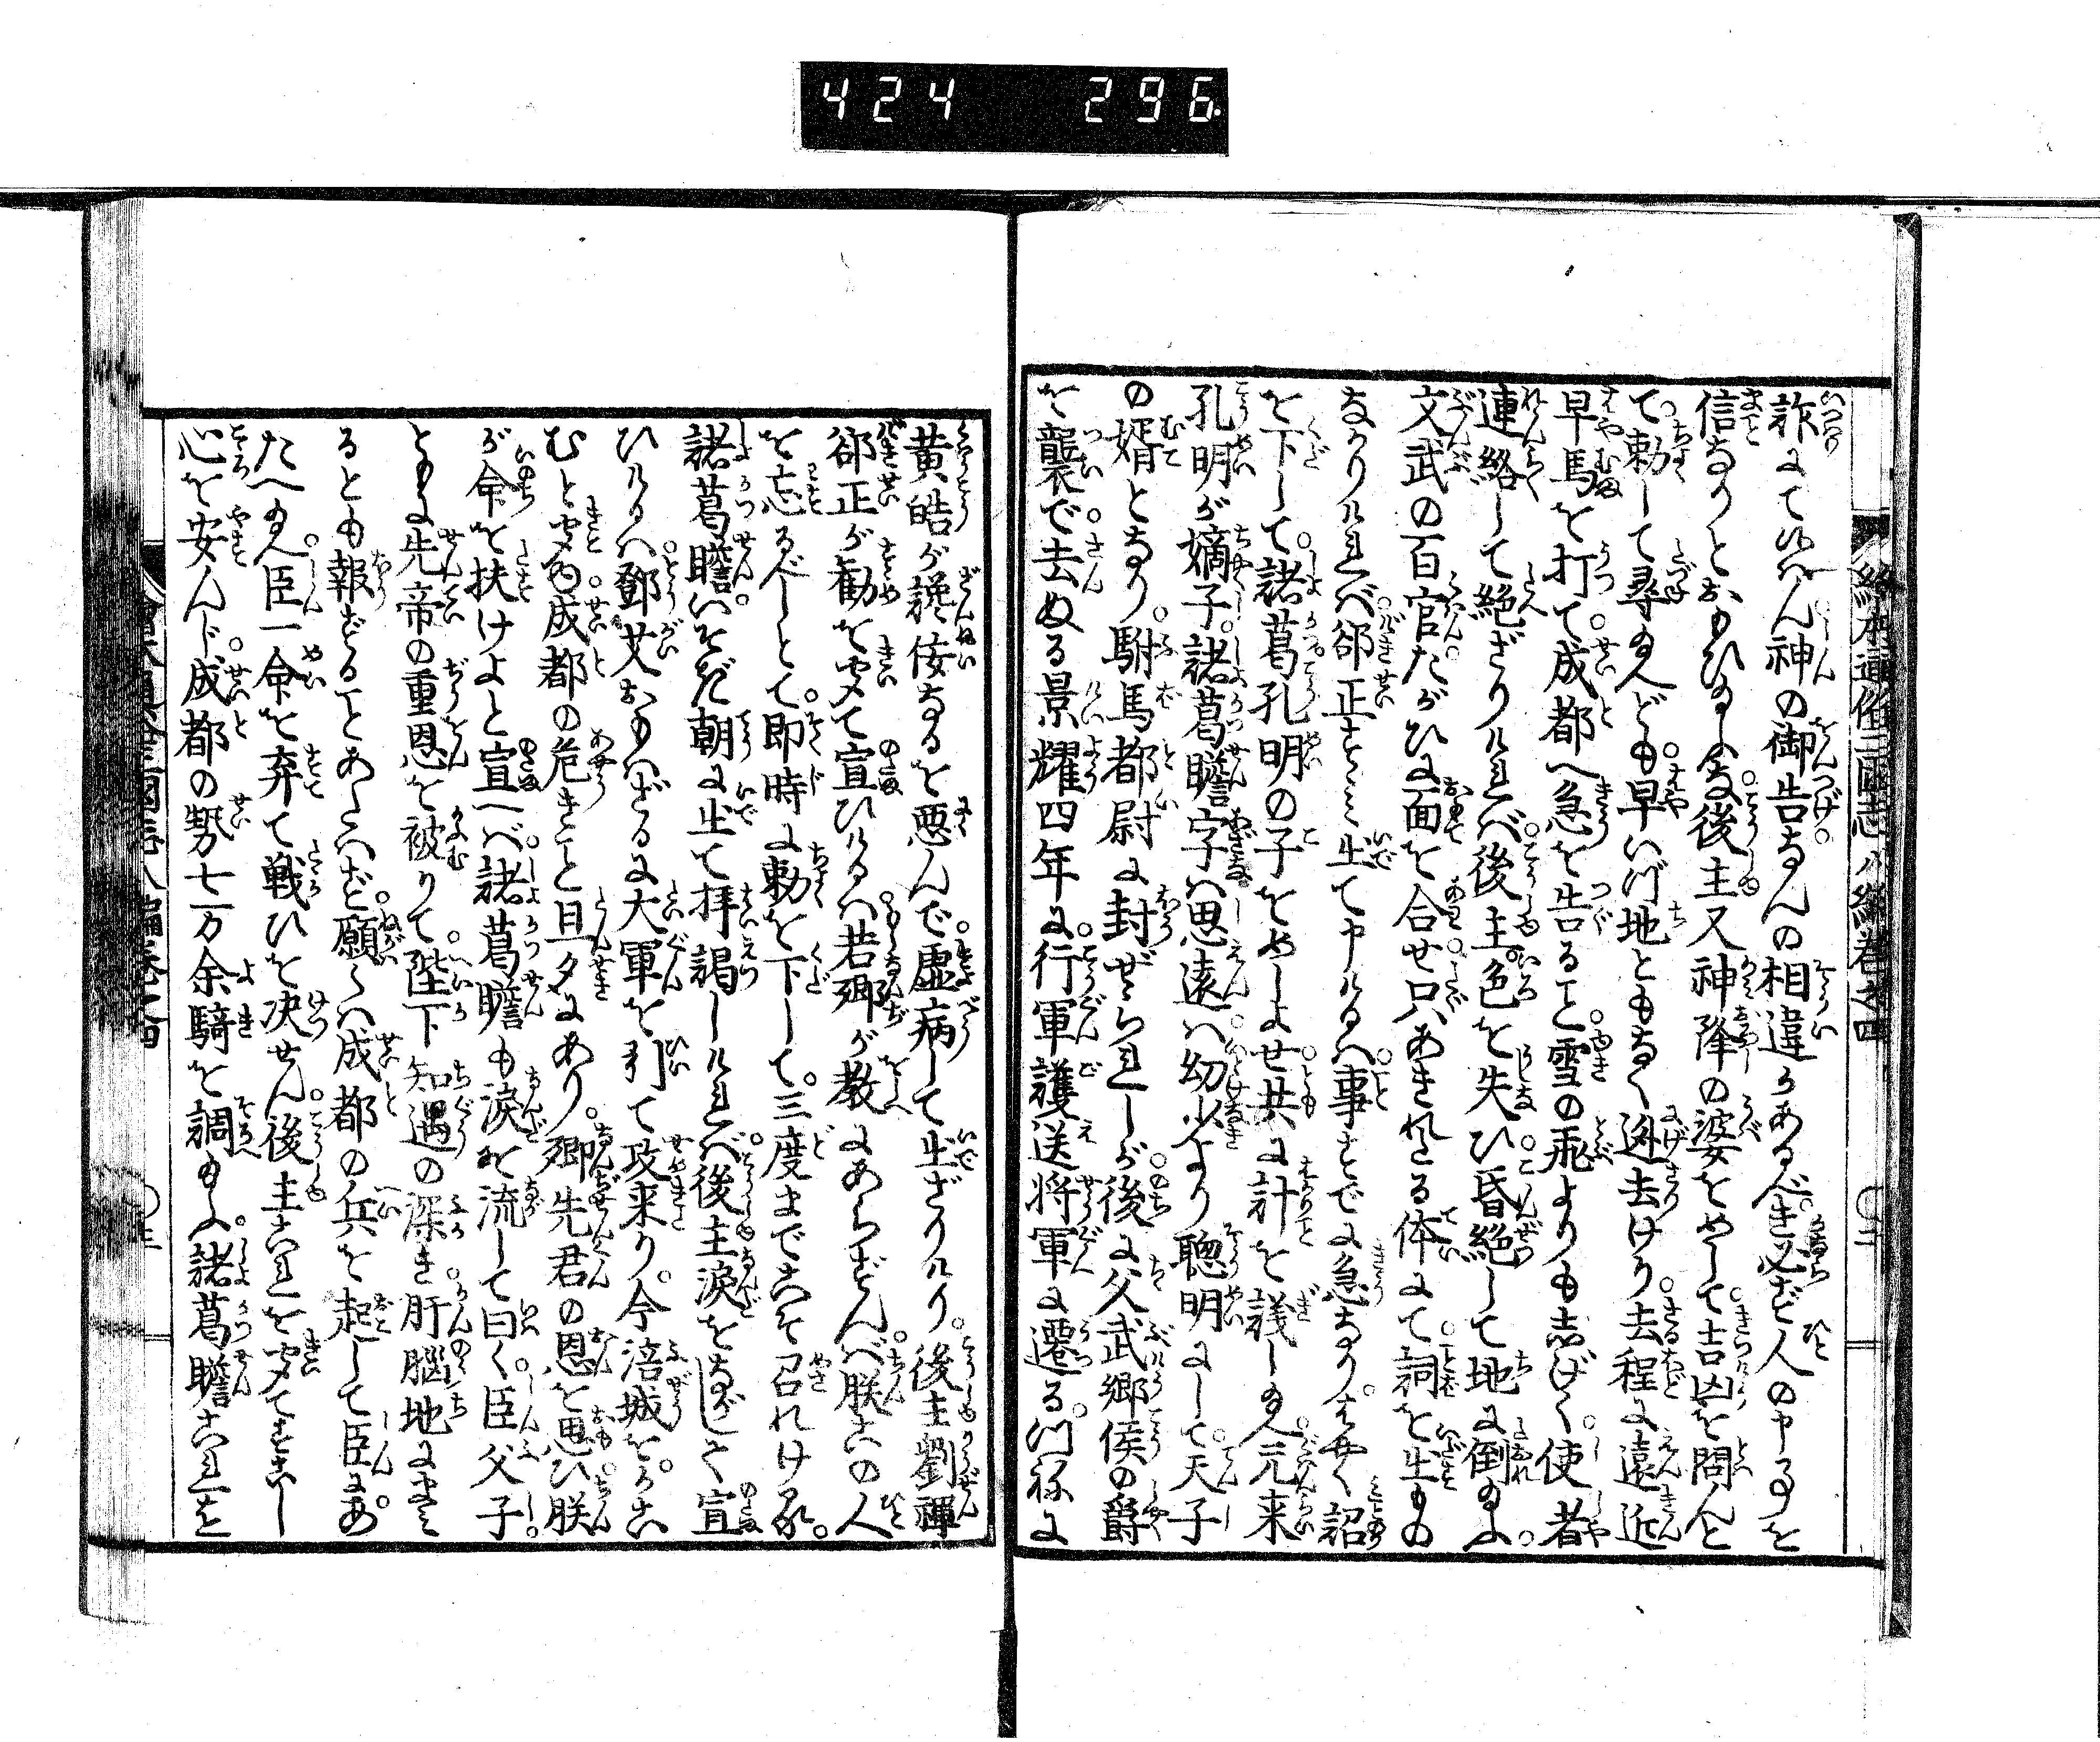 424 296
絵本通俗三国志八編巻之四
詐にてゆはん神の御告なんの相違かあるべき必ず人の申事を
信なりとおもひ給ふな後主又神降の婆をめして吉凶を問んと
て勅して尋給へども早いづ地ともなく逃去けり去程に遠近
早馬を打て成都へ急を告ること雪の飛よりも志げく使者
連絡して絶ざりければ後主色を失ひ昏絶して地に倒給ふ
文武の百官たがひに面を合せ只あきれたる体にて詞を出もの
なかりければ郤正すゝみ出て申けるハ事すでに急なりはやく詔
を下して諸葛孔明の子をめしよせ共に計を議し給へ元来
孔明が嫡子諸葛瞻字ハ思遠ハ幼少より聰明にして天子
の婿となり駙馬都尉に封ぜられしが後に父武郷侯の爵
を襲で去ぬる景耀四年に行軍護送将軍に遷るつねに
黄皓が讒佞なるを悪んで虚病して出ざりけり後主劉禅
郤正が勧を聞て宣ひけるハ若卿が教にあらずんバ朕この人
を忘るべしとて即時に勅を下して三度までこそ召れける
諸葛瞻いそぎ朝に出て拝謁しけれバ後主涙をながして宣
ひけるハ鄧艾おもハざるに大軍を引て攻来り今涪城をかこ
むと聞ぬ成都の危きこと旦夕にあり卿先君の恩を思ひ朕
が命を扶けよと宣へバ諸葛瞻も涙を流して曰く臣父子
ともに先帝の重恩を被りて陛下知遇の深き肝脳地にまみ
るとも報ずることあたハず願くハ成都の兵を起して臣にあ
たへ給へ臣一命を弃て戦ひを决せん後主これを聞てすこし
心を安んじ成都の勢七万余騎を調給ふ諸葛瞻これを